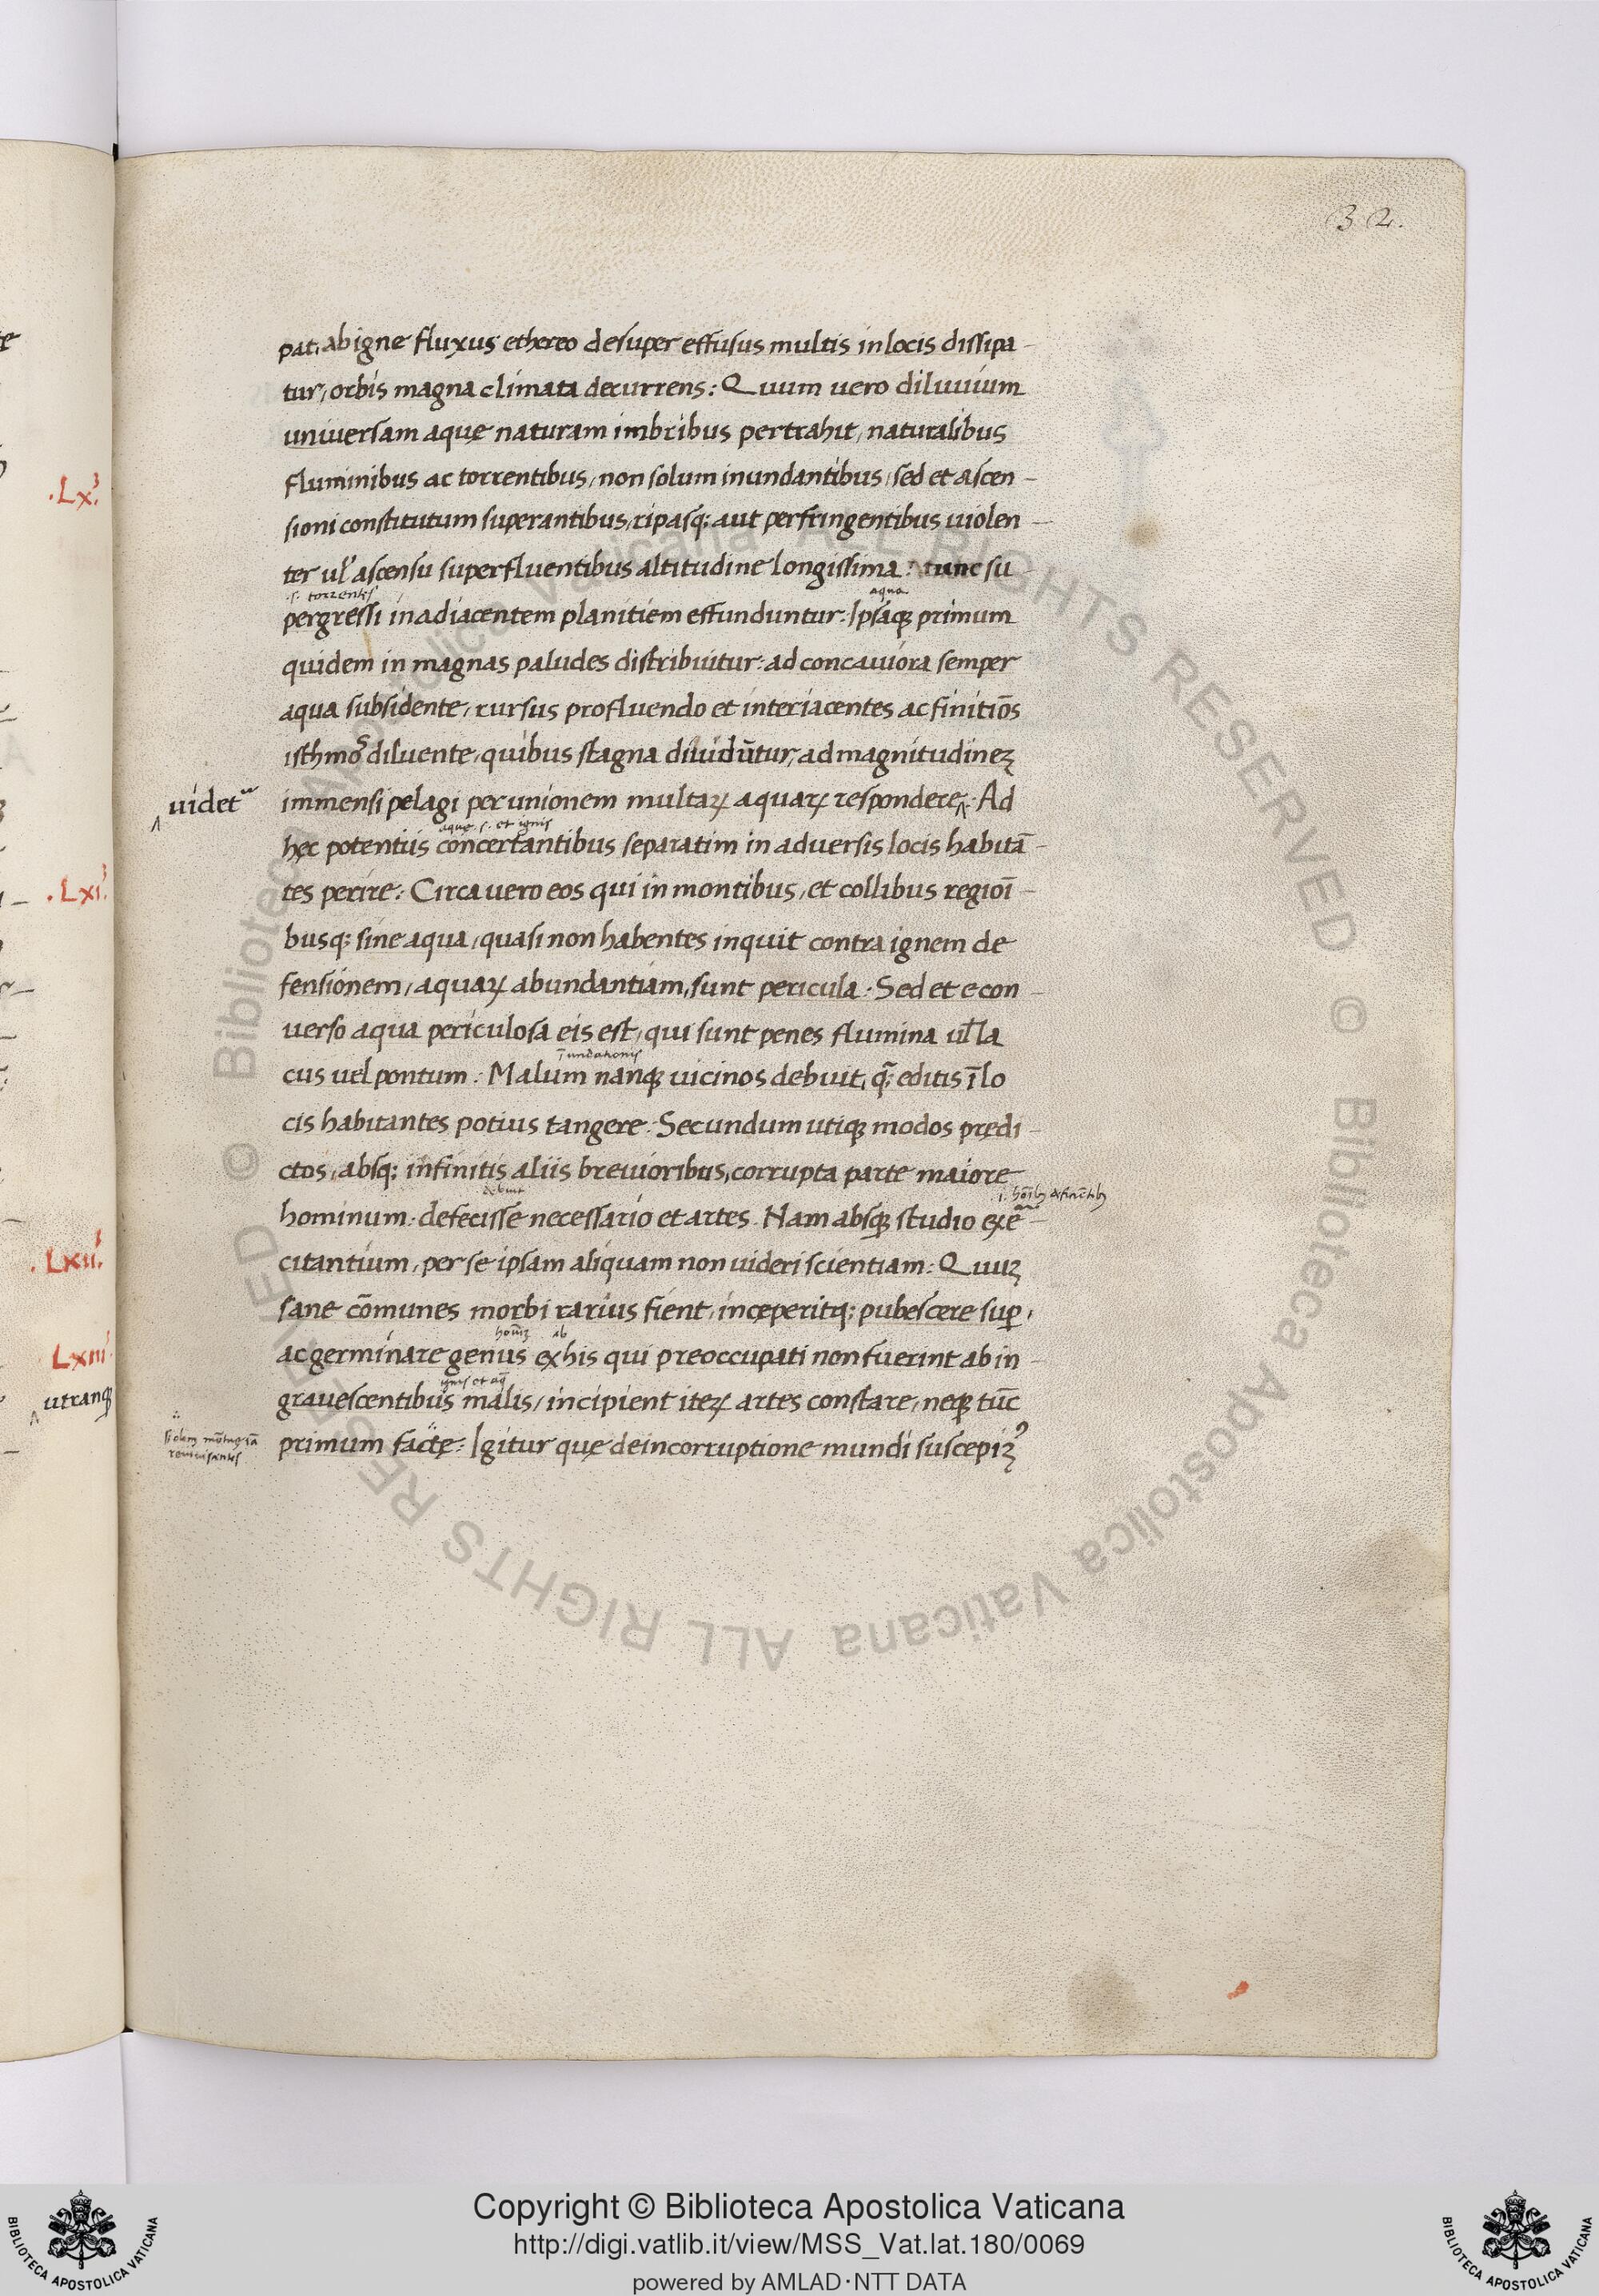 32.
pat, ab igne fluxus ethereo desuper effusus multis in locis dissipa-
tur, orbis magna climata decurrens: Quum vero diluuium
uniuersam aquę naturam imbribus pertrahit, naturalibus
fluminibus ac torrentibus, non solum inundantibus, sed et ascen-
sioni constitutum superantibus, ripasq; aut perfringentibus uiolen-
ter ul' ascensu superfluentibus altitudine longissima: tunc su-
.s. torrentes
aqua
pergressi in adiacentem planitiem effunduntur. Ipsaqꝫ primum
quidem in magnas paludes distribuitur: ad concauiora semper
aqua subsidente, rursus profluendo et interiacentes ac finitiōs
isthmos diluente, quibus stagna diuidūtur, ad magnitudineꝫ
uidet
immensi pelagi per unionem multaꝝ aquaꝝ respondere. Ad
aquę .s. et ignis
hęc potentiis concertantibus separatim in aduersis locis habitā-
tes perire: Circa uero eos qui in montibus, et collibus regioī-
busq; sine aqua, quasi non habentes inquit contra ignem de
fensionem, aquaꝝ abundantiam, sunt pericula. Sed et e con-
uerso aqua periculosa eis est, qui sunt penes flumina ul̄ la
īundationis
cus uel pontum. Malum nanqꝫ uicinos debuit, q̄; editis ī lo
cis habitantes potius tangere. Secundum utiqꝫ modos prędi-
ctos, absq; infinitis aliis breuioribus, corrupta parte maiore
debuit
hominum. defecisse necessario et artes. Nam absqꝫ studio exe-
citantium, per se ipsam aliquam non uideri scientiam: Quuꝫ
sane cōmunes morbi rarius fient, inceperitq; pubescere sup̱,
ab
ac germinare genus ex his qui preoccupati non fuerint ab in-
ignis et aq̄
grauescentibus malis, incipient iteꝝ artes constare, neqꝫ tūc
primum factę: Igitur quę de incorruptione mundi suscepiꝫ
.Lx.
.Lxi.
.Lxii.
Lxiii
utranqꝫ
Copyright © Biblioteca Apostolica Vaticana
http://digi.vatlib.it/view/MSS_Vat.lat.180/0069
powered by AMLAD·NTT DATA
BIBLIOTECA APOSTOLICA VATICANA
BIBLIOTECA APOSTOLICA VATICANA
© Biblioteca Apostolica Vaticana ALL RIGHTS RESERVED © Biblioteca Apostolica Vaticana ALL RIGHTS RESERVED